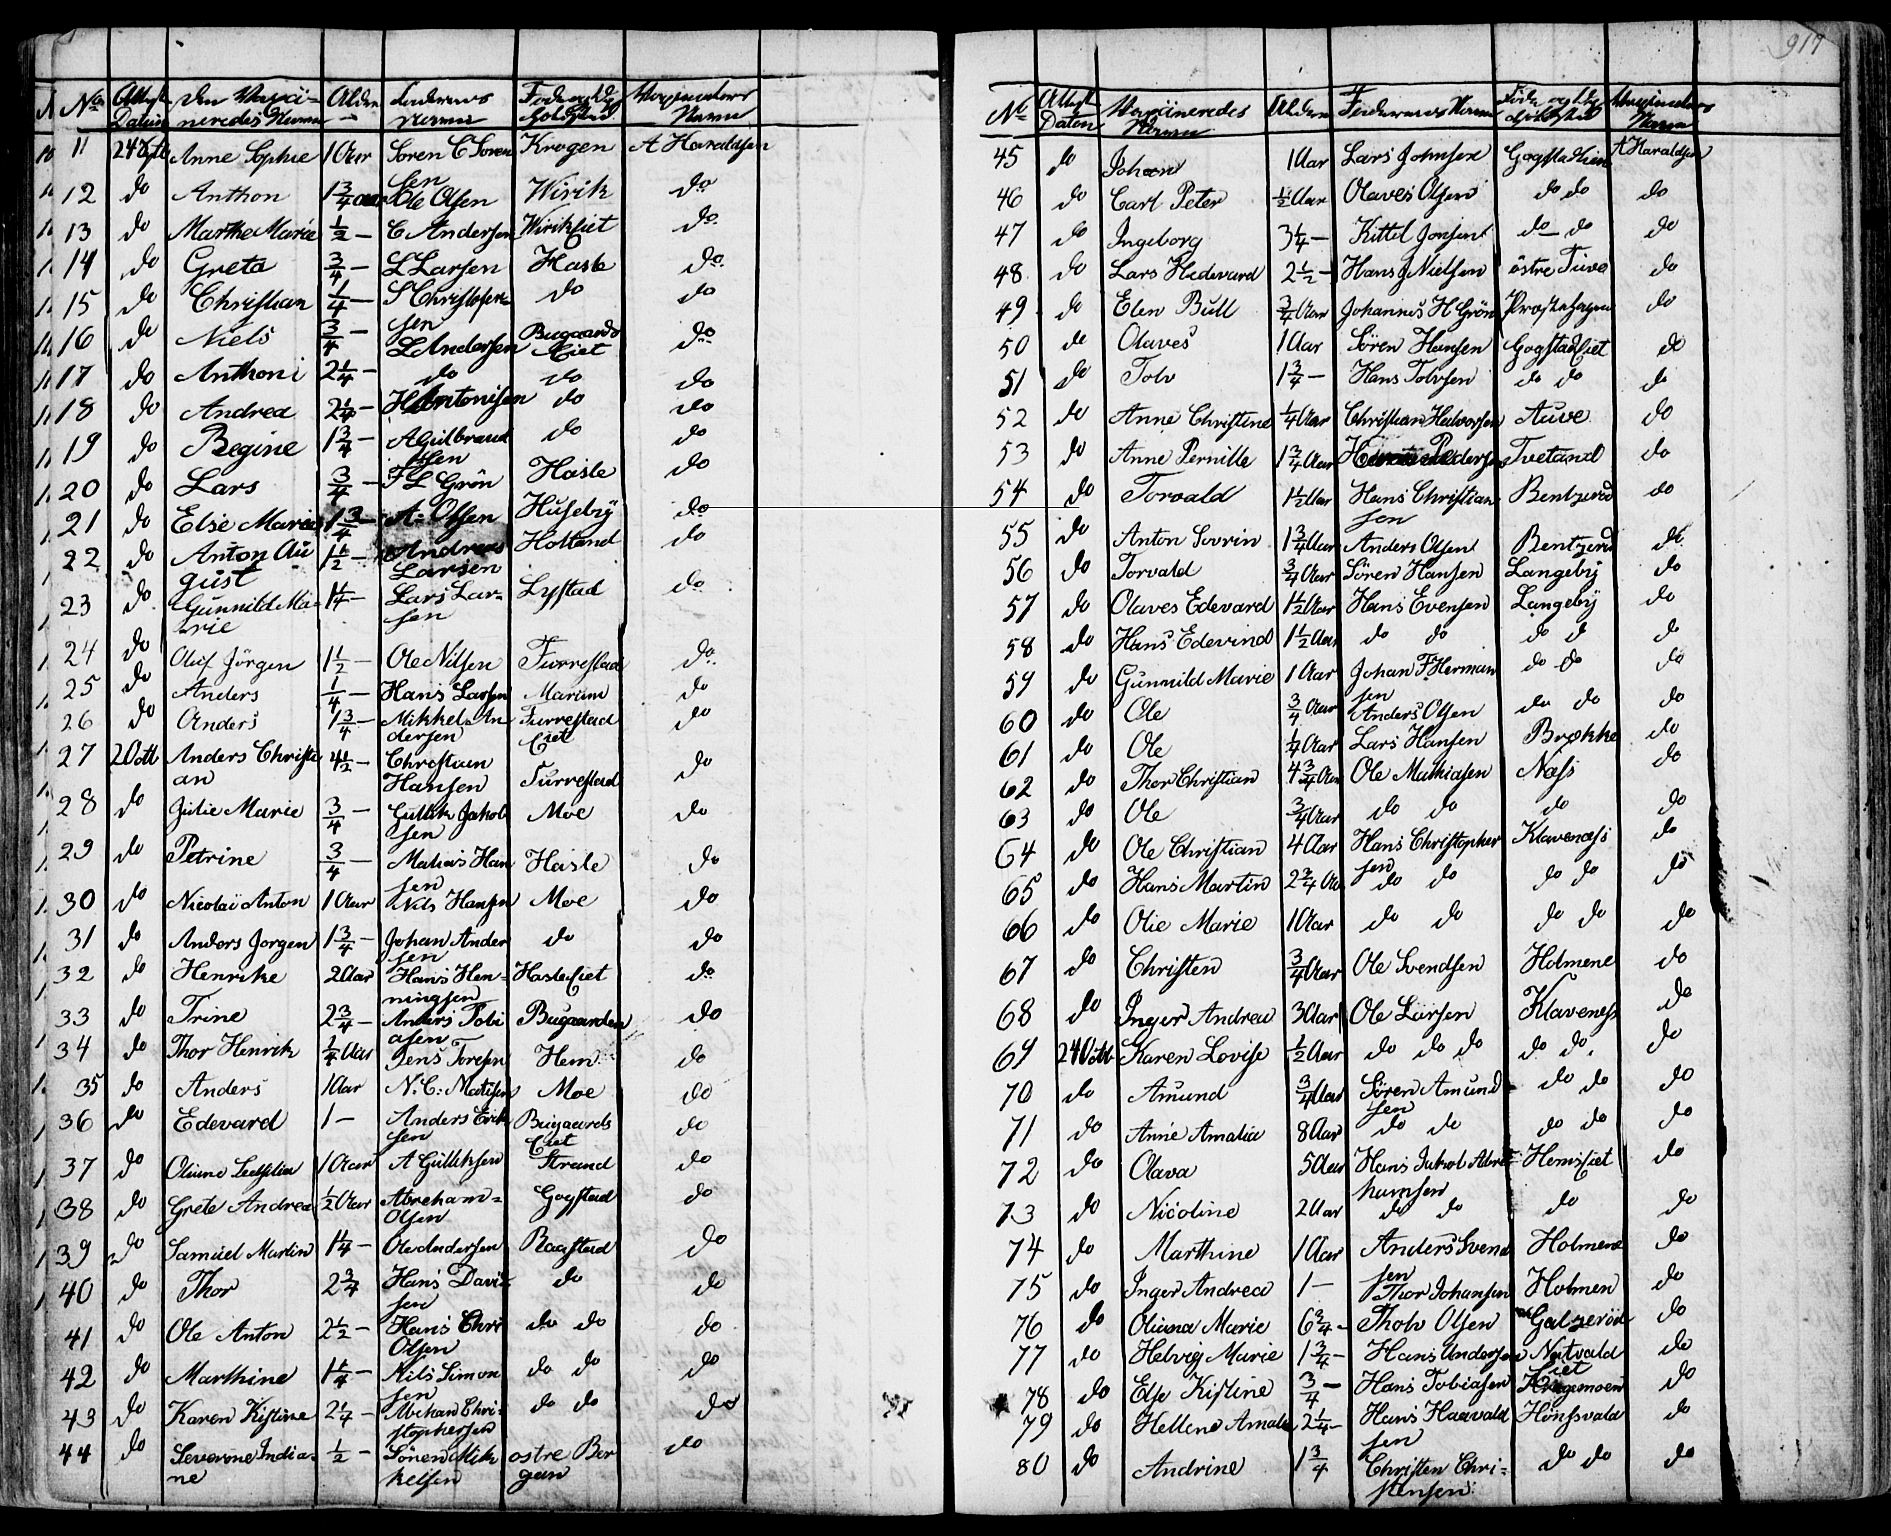 917
No Attest Datum Den Vaxcineredes Navne Alder Faderens Navne Føde og Opholdsted Vaxinateurs Navn
11 24 Sept Anne Sophie 1 Aar Soren C Sorensen Krogen A Haraldsen
12 do Anthon 1 3/4 Aar Ole Olsen Wirik do
13 do Marthe Marie 1/2 — C Andersen Wirikeiet do
14 do Greta 3/4 — L Larsen Hasle do
15 do Christian 1/4 — S Christofersen do do
16 do Niels 3/4 — L Andersen Bugaards Eiet do
17 do Anthoni 2 1/4 — do do do
18 do Andrea 2 1/4 — H Antonisen do do
19 do Regine 1 3/4 — A Gulbrandsen do do
20 do Lars 3/4 — F L Grön Hasle do
21 do Else Marie 1 3/4 — A. Olsen Huseby do
22 do Anton August 1 1/2 — Andreas Larsen Hotland do
23 do Gunnild Marie 1 1/4 — Lars Larsen Lystad do
24 do Oluf Jörgen 1 1/2 — Ole Nilsen Furrestad do
25 do Anders 1/4 — Hans Larsen Marum do
26 do Anders 1 3/4 — Mikkel Andersen Furrestad Eiet do
27 2 Octb Anders Christian 4 1/2 — Christian Hansen Furrestad do
28 do Julie Marie 3/4 — Gullik Jakobsen Moe do
29 do Petrine 3/4 — Matias Hansen Hasle do
30 do Nicolai Anton 1 Aar Nils Hansen Moe do
31 do Anders Jorgen 1 3/4 — Johan Andersen do do
32 do Henrike 2 Aar Hans Henningsen Hasleeiet do
33 do Trine 2 3/4 — Anders Tobiasen Bugaarden do
34 do Thor Henrik 1/4 Aar Jens Toresen Hem do
35 do Anders 1 Aar N. C. Matisen Moe do
36 do Edevard 1 — Anders Eriksen Bugaards Eiet do
37 do 1 Aar A Gulliksen Strand do
38 do Grete Andrea 1/2 Aar Abraham Olsen Gogstad do
39 do Samuel Martin 1 1/4 — Ole Andersen Raastad do
40 do Thor 2 3/4 Hans Davisen do do
41 do Ole Anton 2 1/2 — Hans Chri Olsen do do do
42 do Marthine 1 1/4 — Nils Simonsen do do do
43 do Karen Kistine 2 1/4 — Christophersen do do do
44 do Severine Indiane 1/2 — Sören Mikkelsen ostre Bergan do
No Attest Daten Vaxcineredes Navne Alder Faderenes Navne Føde og Opholdsted Vaxinateurs Navn
45 do Johan 1 Aar Lars Johnsen A Haraldsen
46 do Carl Peter 1/2 Aar Olaves Olsen do do do
47 do Ingeborg 3 1/4 — Kittel Jonsen do do do
48 do Lars Hedevard 2 1/2 — Hans J Nielsen östre Tuve do
49 do Elen Bull 3/4 Aar Johannes H Grön Præstehagen do
50 do Olaves 1 Aar Sören Hansen Gogstadeiet do
51 do Tolv 1 3/4 — Hans Tolvsen do do do
52 do Anne Christine 1/4 Aar Christian Hedvorsen Auve do
53 do Anne Pernille 1 3/4 Aar Pedersen Tvetand do
54 do Torvald 1 1/2 Aar Hans Christiansen Bentzerød do
55 do Anton Sovrin 1 3/4 Aar Anders Olsen Bentzerød do
56 do Torvald 3/4 Aar Sören Hansen Langeby do
57 do Olaves Edevard 1 1/2 Aar Hans Evensen Langeby do
58 do Hans Edevind 1 1/2 Aar do do do do do
59 do Gunnild Marie 1 Aar Johan F. Hermansen do do do
60 do Ole 3/4 Aar Anders Olsen do do do
61 do Ole 1/4 Aar Lars Hansen Brække do
62 do Thor Christian 4 3/4 Aar Ole Mathiasen Næss do
63 do Ole 3/4 Aar do do do do
64 do Ole Christian 4 Aar Hans Christophersen Klavenæss do
65 do Hans Martin 2 3/4 Aar do do do do do
66 do Olie Marie 1 Aar do do do do do
67 do Christen 3/4 Aar Ole Svendsen Holmene do
68 do Inger Andrea 3 Aar Ole Larsen Klaveness do
69 24 Octb Karen Lovise 1/2 Aar do do do do do. do
70 do Amund 3/4 Aar Sören Amundsen do do do
71 do Anne Amalia 8 Aar do do do do do
72 do Olava 5 Aar Hans Jakob Abrahamsen Hemseiet do
73 do Nicoline 2 Aar do do do do
74 do Marthine 1 Aar Anders Svendsen Holmene do
75 do Inger Andrea 1 — Thor Johansen Holmen do
76 do Oliana Marie 6 3/4 — Tholv Olsen Gatzerød do
77 do Helveg Marie 1 3/4 — Hans Andersen Natvald Eiet do
78 do Else Kistine 3/4 — Hans Tobiasen do
79 do Hellene Amalia 2 1/4 — Hans Haavaldsen Hønsvald do
80 do Andrine 1 3/4 Christen Christensen do do do